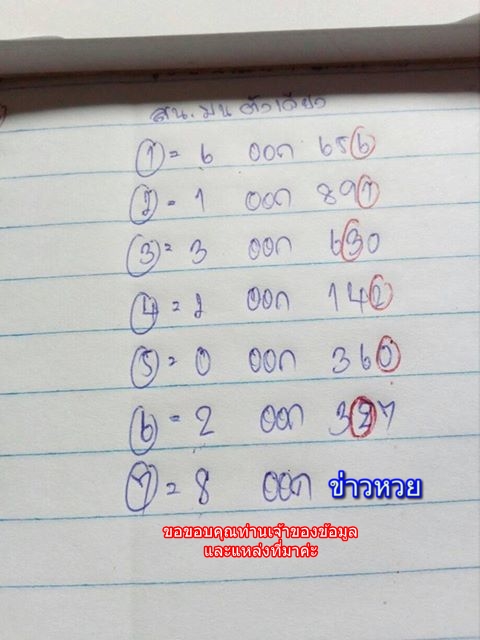 สน. มน ตัวเดียว
1 = 6 ออก 656
2 = 1 ออก 891
3 = 3 ออก 630
4 = 2 ออก 142
5 = 0 ออก 360
6 = 2 ออก 327
7 = 8 ออก ข่าวหวย
ขอขอบคุณท่านเจ้าของข้อมูล
และแหล่งที่มาค่ะ